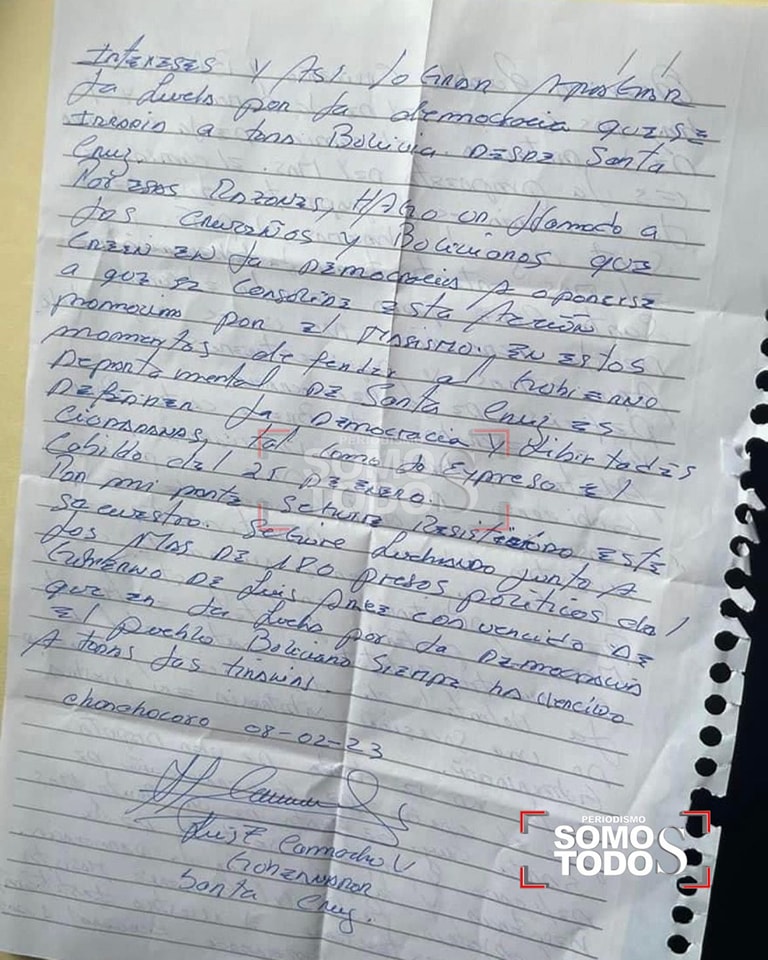 Intereses y Así logran Apagar
la lucha por la democracia que se
irradia a toda Bolivia desde Santa
Cruz.
Por esas Razones, HAGO un llamado a
los cruceños y Bolivianos que
creen en la Democracia A oponerse
a que se consolide esta Acción
promovida por el Masismo. En estos
momentos defender al Gobierno
Departamental de Santa Cruz es
Defender la Democracia y libertades
Ciudadanas, tal como lo expreso el
Cabildo del 25 De Enero.
Por mi parte seguire Resistiendo este
secuestro. Seguire luchando junto A
los Mas de 180 presos políticos del
Gobierno De Luis Arce convencido de
que en la lucha por la Democracia
el pueblo Boliviano siempre ha vencido
A todas las tiranias.
chonchocoro 08-02-23
Luis F Camacho V
Gobernador
Santa Cruz.
PERIODISMO
SOMOS
TODOS
PERIODISMO
SOMOS
TODOS